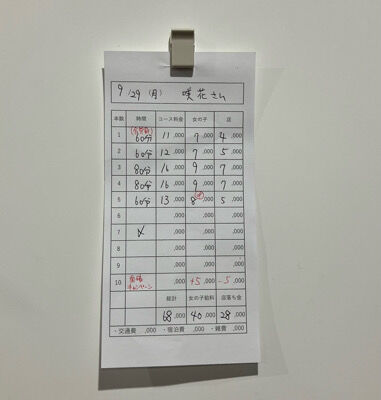 9/29 (月) 咲花さん
本数 時間 コース料金 女の子 店
1 60分 11,000 7,000 4,000
2 60分 12,000 7,000 5,000
3 80分 16,000 9,000 7,000
4 80分 16,000 9,000 7,000
5 60分 13,000 8,000 5,000
6 ,000 ,000 ,000
7 ,000 ,000 ,000
8 ,000 ,000 ,000
9 ,000 ,000 ,000
10 キャンペーン ,000 +5,000 -5,000
総計 女の子給料 店落ち金
68,000 40,000 28,000
・交通費 ,000 ・宿泊費 ,000 ・雑費 ,000